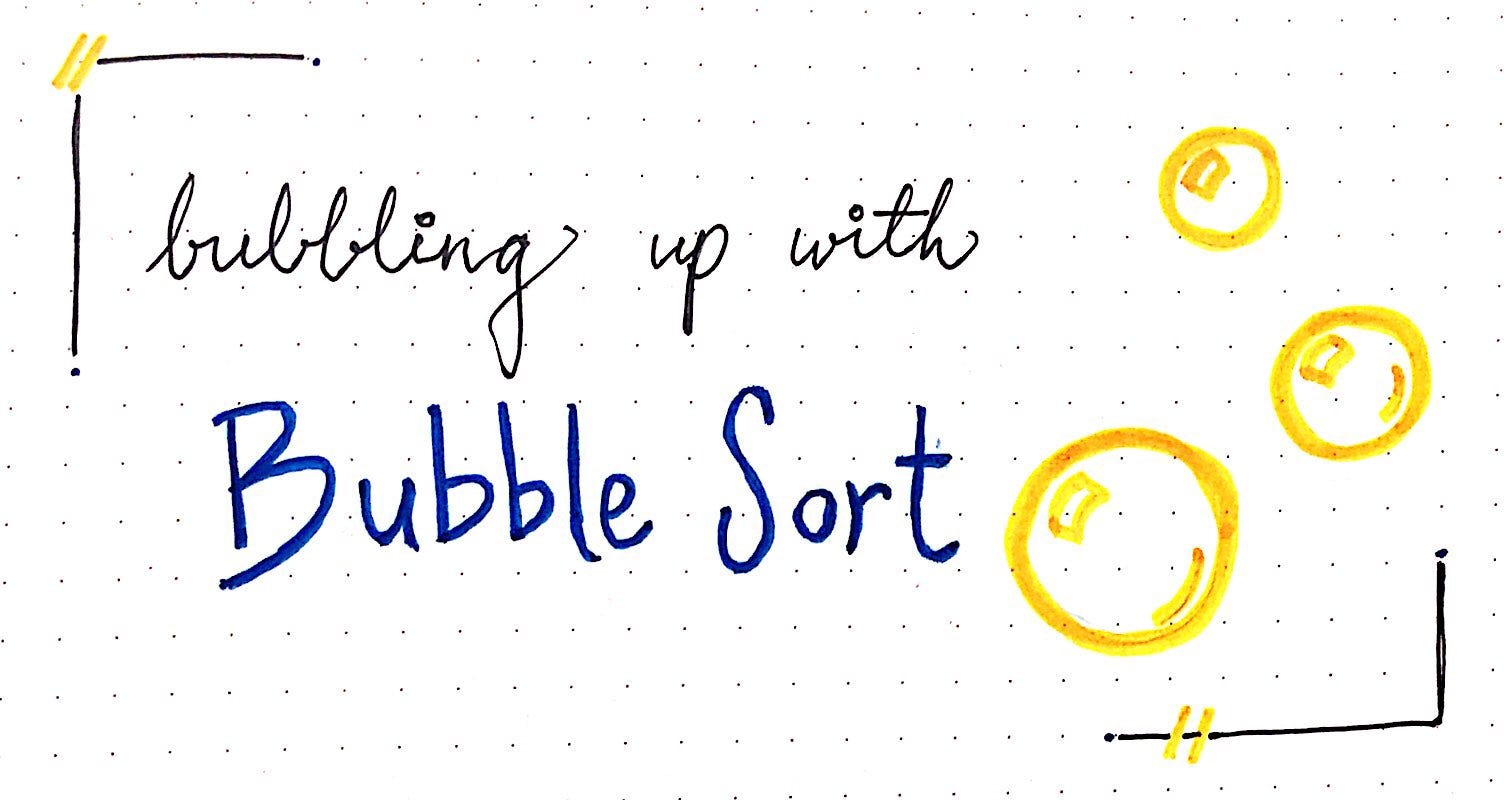 bubbling up with
Bubble Sort